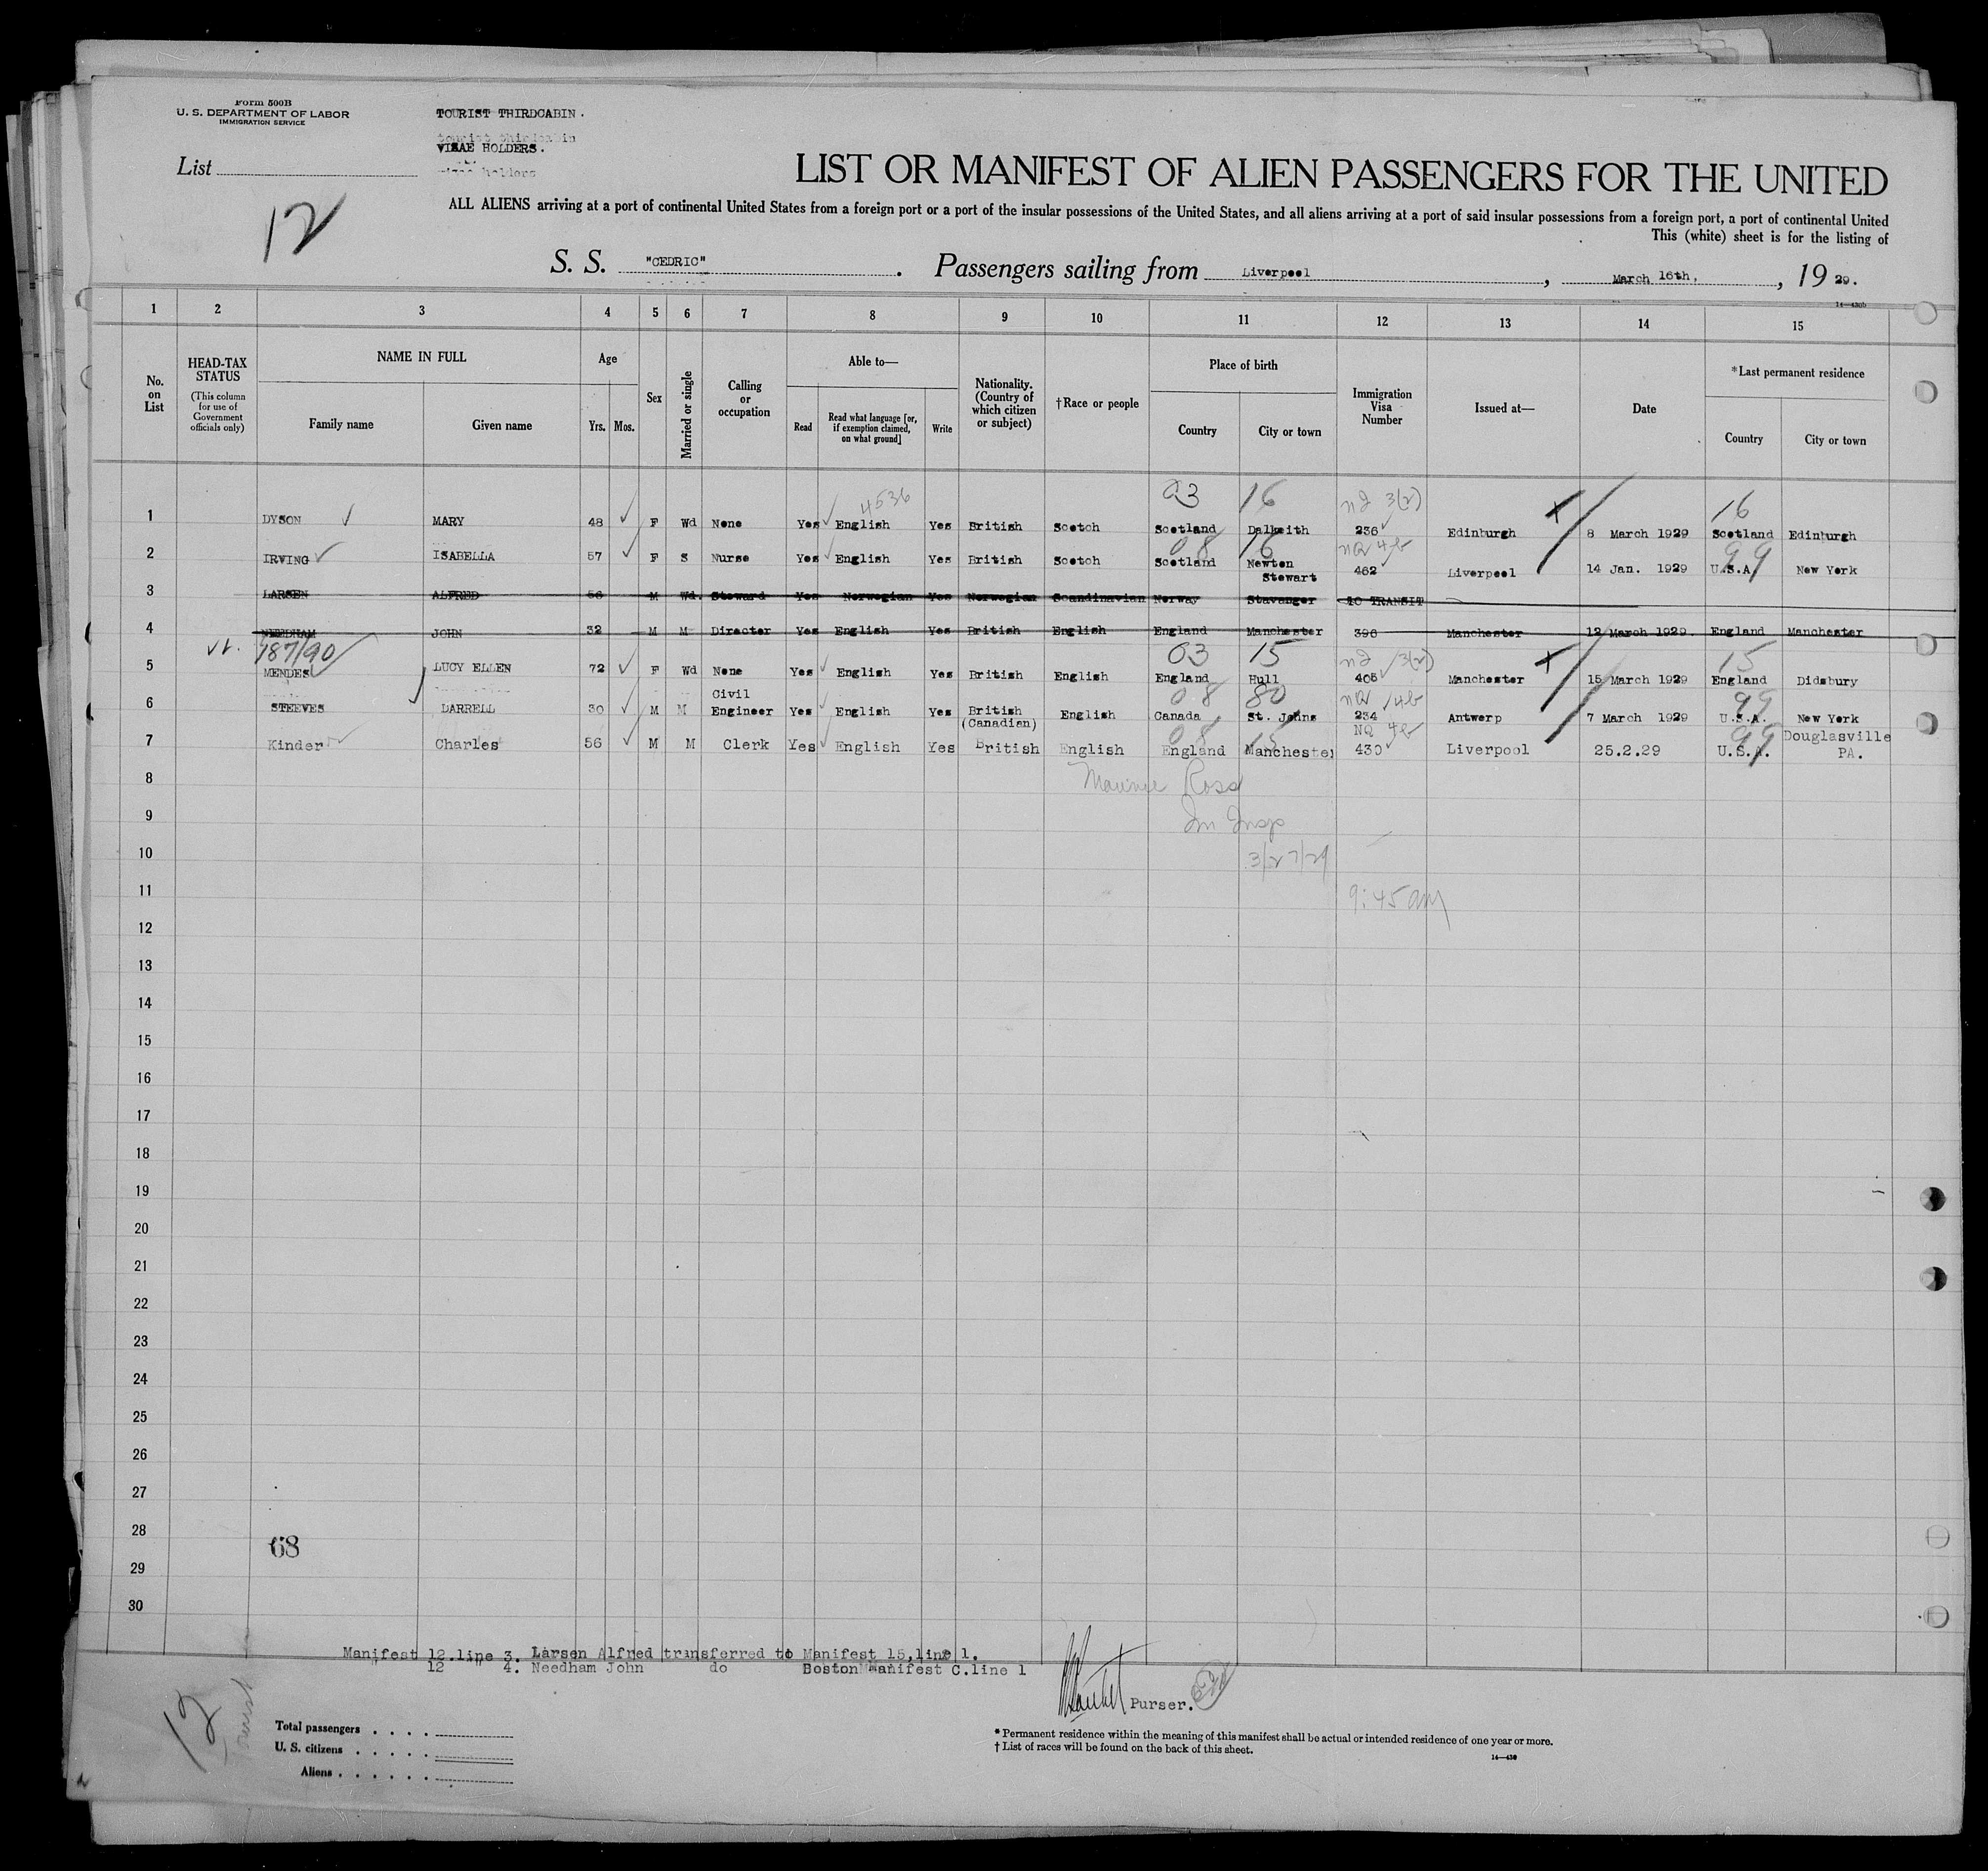 Form 500B
U. S. DEPARTMENT OF LABOR
IMMIGRATION SERVICE
TOURIST THIRDCABIN.
tourist third cabin
VISAE HOLDERS.
holders
List
12
LIST OR MANIFEST OF ALIEN PASSENGERS FOR THE UNITED
ALL ALIENS arriving at a port of continental United States from a foreign port or a port of the insular possessions of the United States, and all aliens arriving at a port of said insular possessions from a foreign port, a port of continental United
This (white) sheet is for the listing of
S. S. "CEDRIC". Passengers sailing from Liverpool, March 16th, 19 29.
14—430b
1 2 3 4 5 6 7 8 9 10 11 12 13 14 15
No. on List
HEAD-TAX STATUS
(This column for use of Government officials only)
NAME IN FULL
Family name Given name
Age
Yrs. Mos.
Sex
Married or single
Calling or occupation
Able to—
Read
Read what language [or, if exemption claimed, on what ground]
Write
Nationality. (Country of which citizen or subject)
†Race or people
Place of birth
Country City or town
Immigration Visa Number
Issued at—
Date
*Last permanent residence
Country City or town
4536 03 16 3(2) 16
1 DYSON MARY 48 F Wd None Yes English Yes British Scotch Scotland Dalkeith 236 Edinburgh 8 March 1929 Scotland Edinburgh
08 16 NQ 4b 99
2 IRVING ISABELLA 57 F S Nurse Yes English Yes British Scotch Scotland Newton Stewart 462 Liverpool 14 Jan. 1929 U.S.A. New York
3 LARSEN ALFRED 56 M Wd. Steward Yes Norwegian Yes Norwegian Scandinavian Norway Stavanger TO TRANSIT
4 NEEDHAM JOHN 32 M M Director Yes English Yes British English England Manchester 396 Manchester 12 March 1929. England Manchester
187/90 03 15 3(2) 15
5 MENDES LUCY ELLEN 72 F Wd None Yes English Yes British English England Hull 405 Manchester 15 March 1929 England Didsbury
08 80 NQ 4b 99
6 STEEVES DARRELL 30 M M Civil Engineer Yes English Yes British (Canadian) English Canada St. Johns 234 Antwerp 7 March 1929 U.S.A. New York
08 15 NQ 4b 99
7 Kinder Charles 56 M M Clerk Yes English Yes British English England Manchester 430 Liverpool 25.2.29 U.S.A. Douglasville PA.
8
Ross
9
Im Insp
10
3/27/29
11
9:45 am
12
13
14
15
16
17
18
19
20
21
22
23
24
25
26
27
28
68
29
30
Manifest 12.line 3. Larsen Alfred transferred to Manifest 15,line 1.
" 12 " 4. Needham John do Boston Manifest C.line 1
Purser.
12
Total passengers
U. S. citizens
Aliens
* Permanent residence within the meaning of this manifest shall be actual or intended residence of one year or more.
† List of races will be found on the back of this sheet.
14—430